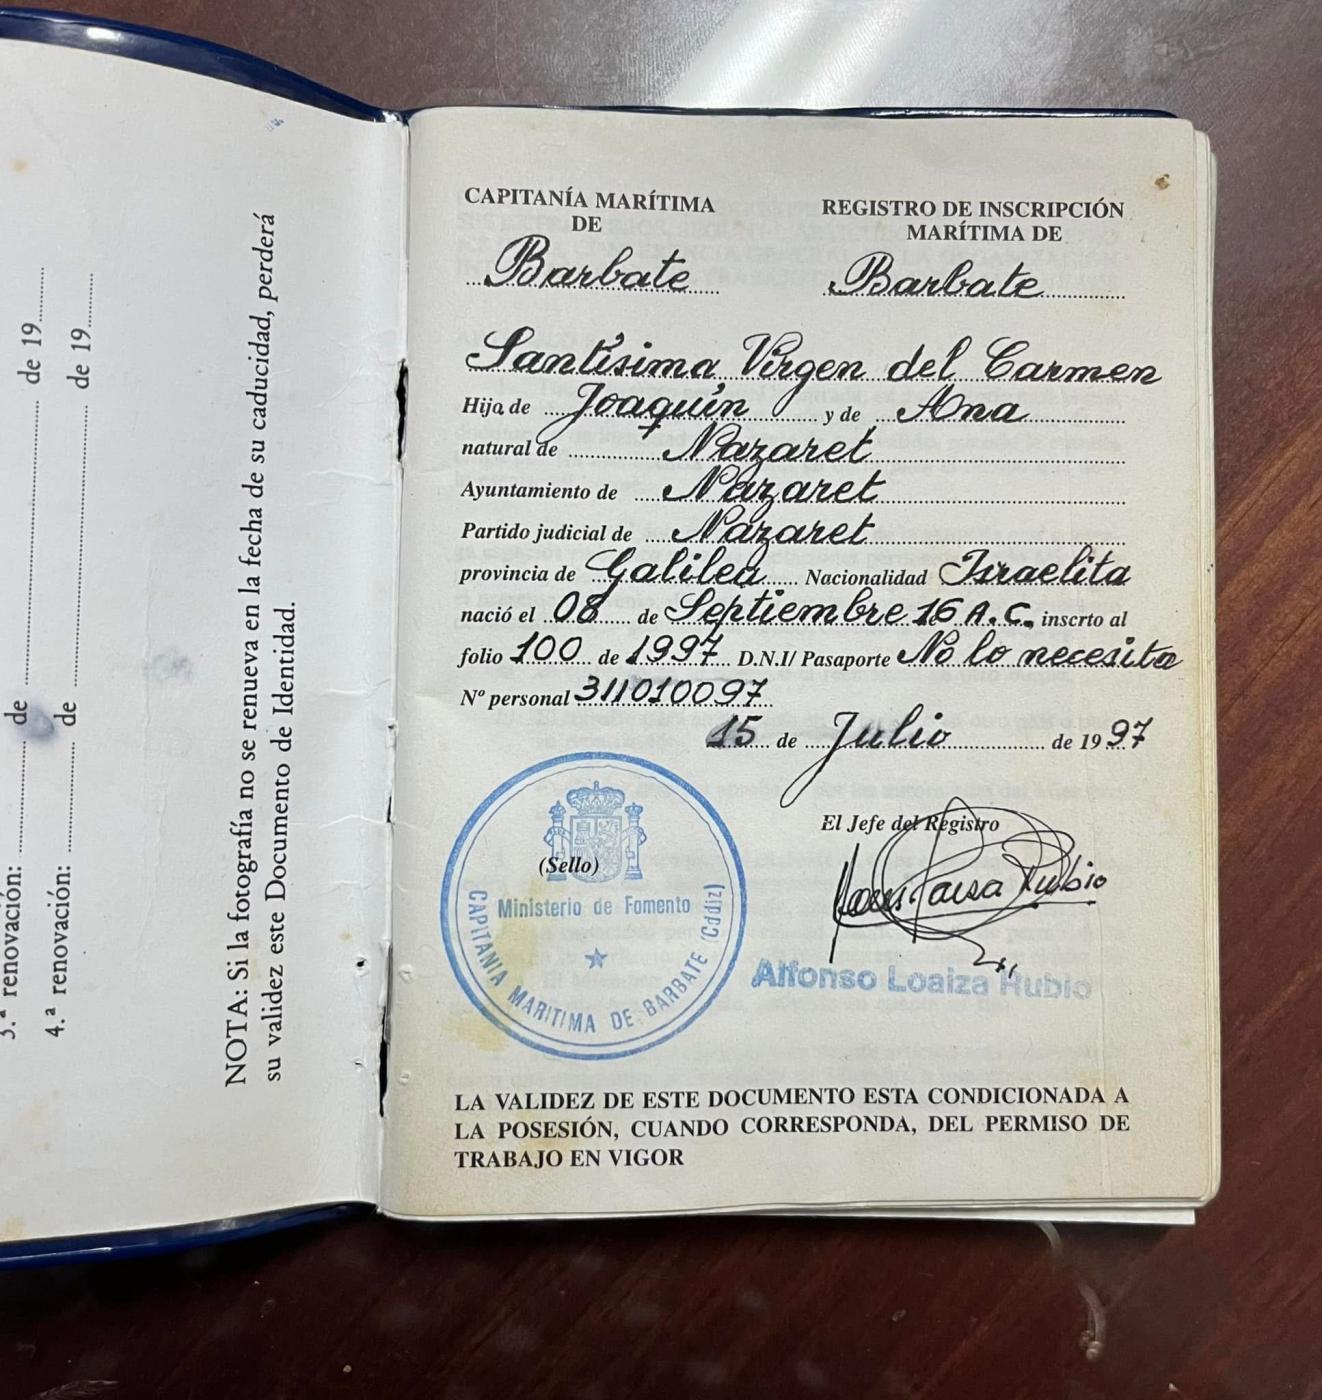 3.ª renovación: de de 19
4.ª renovación: de de 19
NOTA: Si la fotografía no se renueva en la fecha de su caducidad, perderá
su validez este Documento de Identidad.
CAPITANÍA MARÍTIMA
DE
Barbate
REGISTRO DE INSCRIPCIÓN
MARÍTIMA DE
Barbate
Santísima Virgen del Carmen
Hija de Joaquín y de Ana
natural de Nazaret
Ayuntamiento de Nazaret
Partido judicial de Nazaret
provincia de Galilea Nacionalidad Israelita
nació el 08 de Septiembre 16 A.C. inscrto al
folio 100 de 1997 D.N.I/ Pasaporte No lo necesita
Nº personal 311010097
15 de Julio de 1997
El Jefe del Registro
(Sello)
Ministerio de Fomento
CAPITANIA MARITIMA DE BARBATE (Cádiz)
Rubio
Alfonso Loaiza Rubio
LA VALIDEZ DE ESTE DOCUMENTO ESTA CONDICIONADA A
LA POSESIÓN, CUANDO CORRESPONDA, DEL PERMISO DE
TRABAJO EN VIGOR